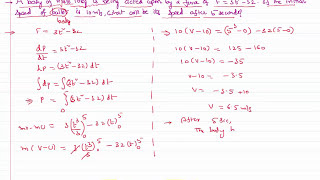 A body of mass 10kg is being acted upon by a force of F = 3t²-32. If the initial
speed of body is 10 m/s, what will be its speed after 5 seconds?
body
→ F = 3t²-32
dp/dt = 3t²-32
dp = (3t²-32) dt
∫dp = ∫(3t²-32) dt
⇒ P = ∫(3t²-32) dt
mv-mu = 3(t³/3)₀⁵ - 32(t)₀⁵
m(v-u) = 3(t³)₀⁵/3 - 32(t)₀⁵
→ 10(v-10) = (5³-0) - 32(5-0)
10(v-10) = 125 - 160
v-10 = -3.5
v = -3.5+10
v = 6.5 m/s
→ After 5 sec,
The body h